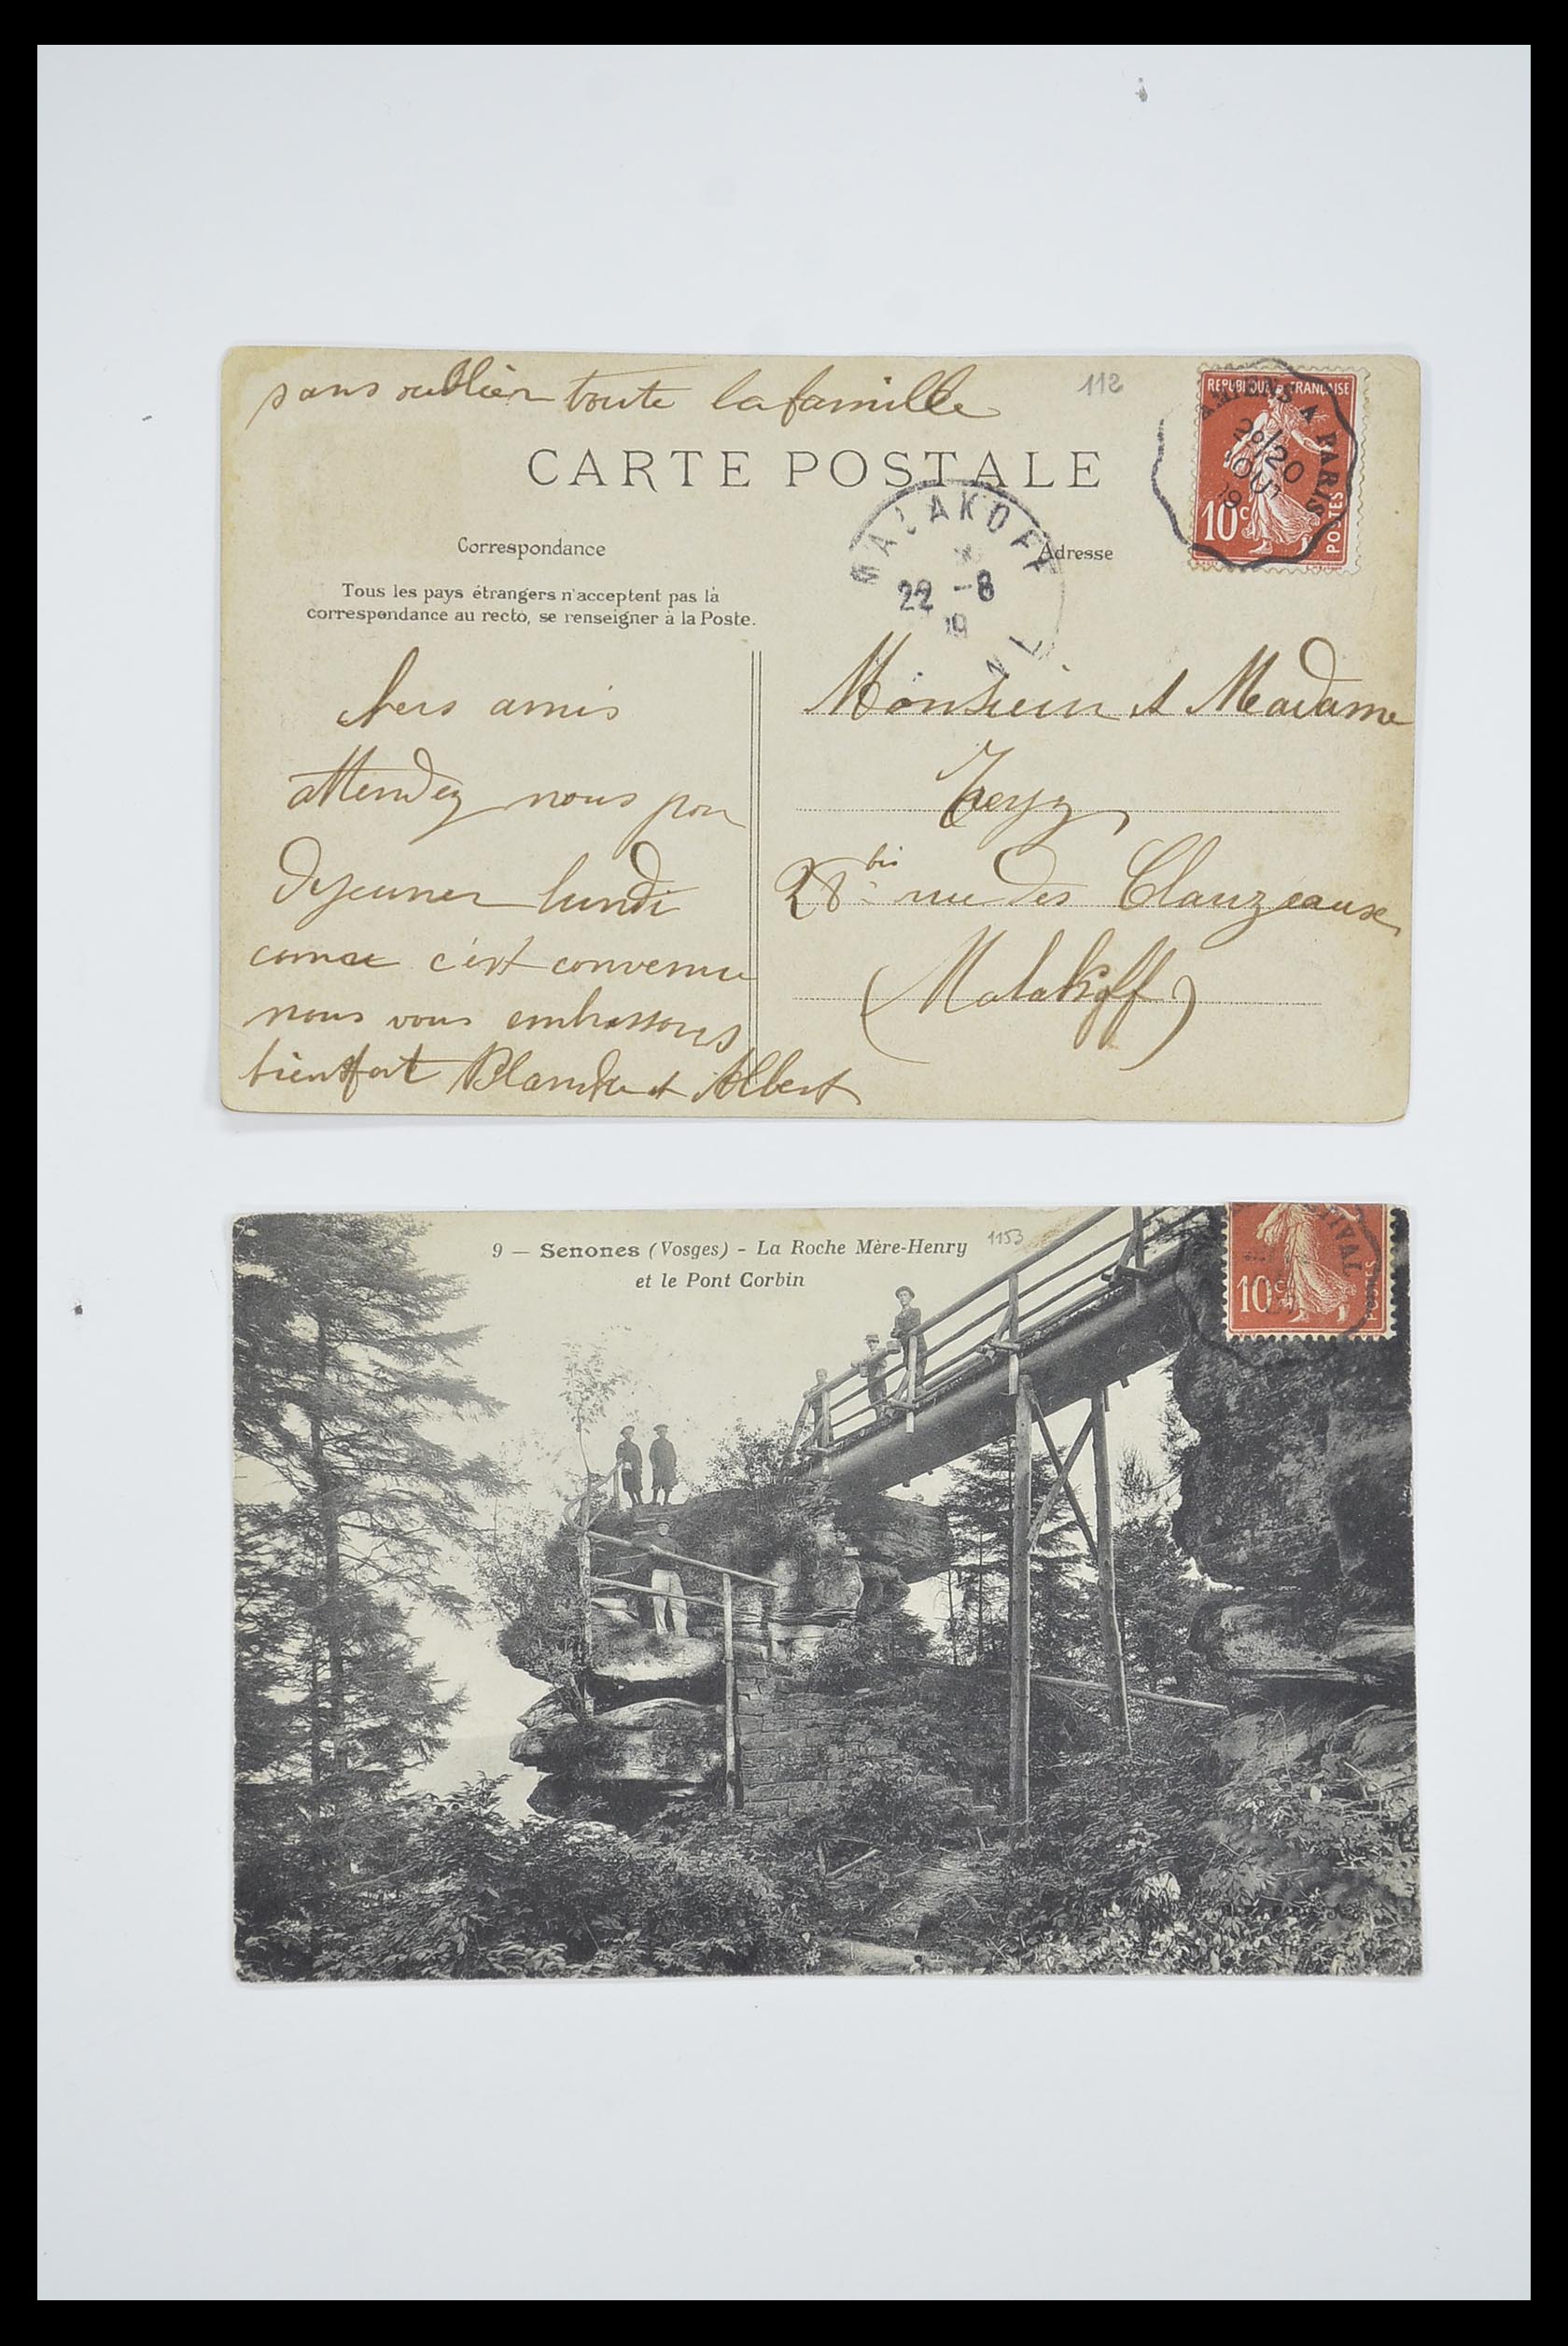 sans oublier toute la famille
112
REPUBLIQUE FRANÇAISE
10c
POSTES
A PARIS
CARTE POSTALE
MALAKOFF
22 -8
Correspondance
Adresse
Tous les pays étrangers n'acceptent pas la
correspondance au recto, se renseigner à la Poste.
chers amis
attendez nous pour
dejeuner lundi
comme c'est convenu
nous vous embrassons
bien fort Blanche et Albert
Monsieur et Madame
28 bis rue des Clauzeaux
(Malakoff)
9 — Senones (Vosges) - La Roche Mère-Henry
et le Pont Corbin
1153
10c
POSTES